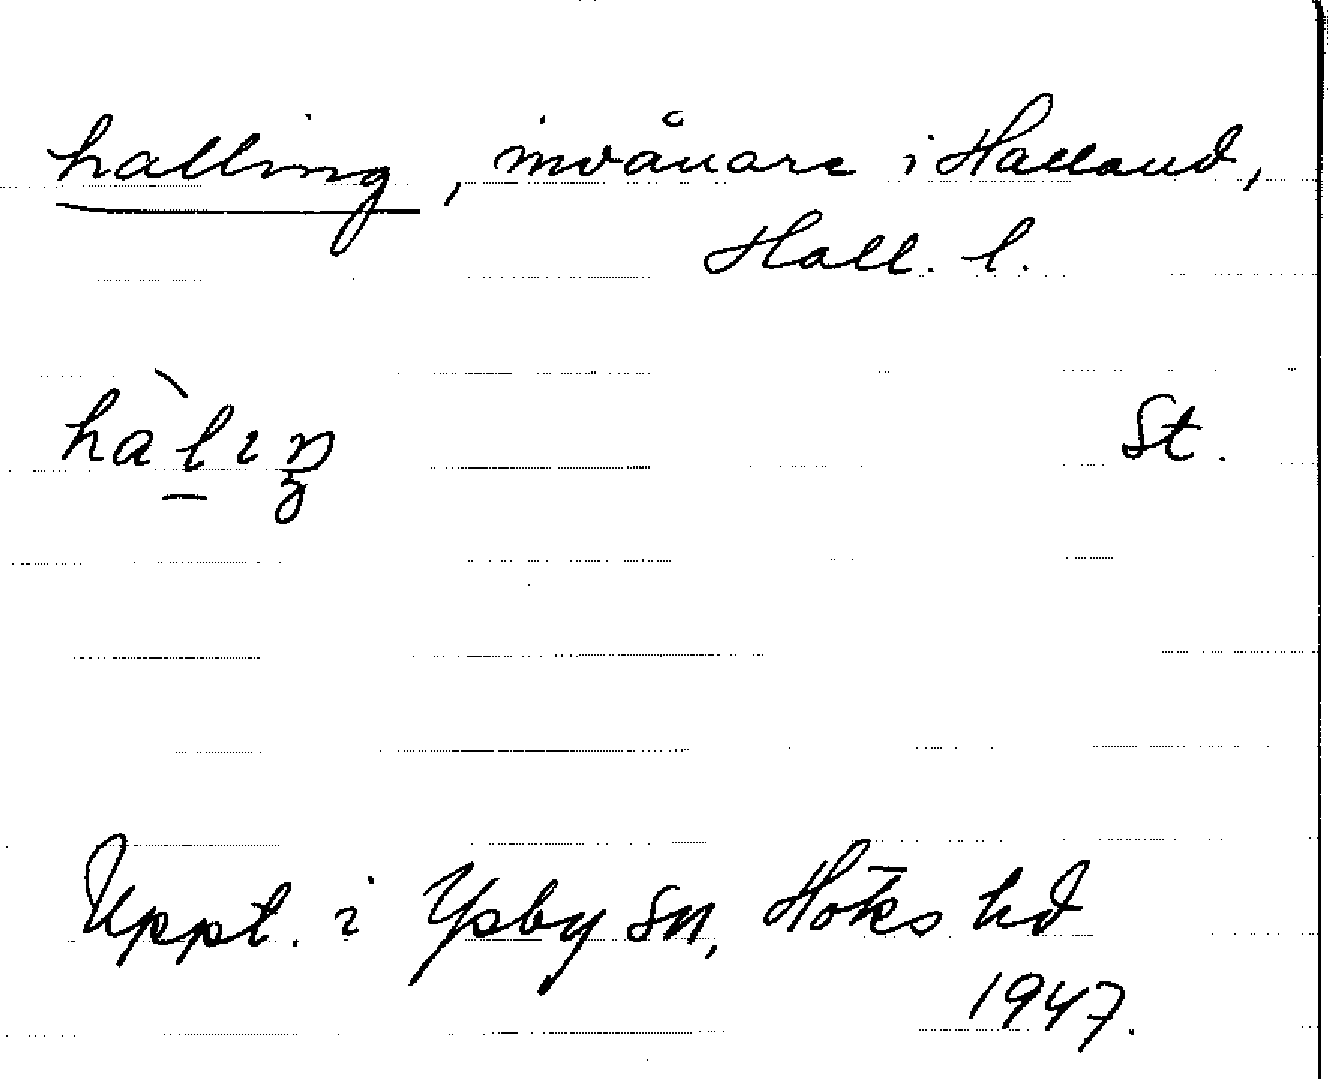 halling, invånare i Halland,
Hall. l.
St.
Uppt. i Ysby sn, Höks hd
1947.